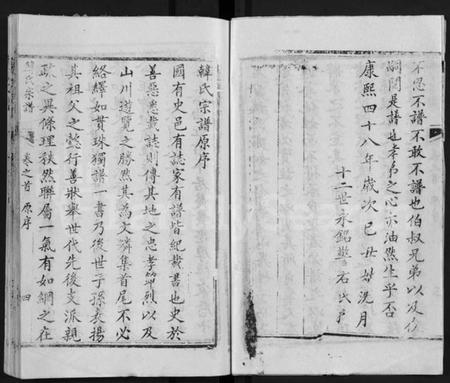 不忍不譜不敢不譜也伯叔兄弟以及後
嗣閱是譜也孝弟之心亦油然生乎否
康熙四十八年歲次己丑姑洗月
十二世永銘
韓氏宗譜原序
國有史邑有誌家有譜皆紀載書也史於
善惡悉載誌則傳其地之忠孝節烈以及
山川遊覽之勝然其為文濟集首尾不必
絡繹如貫珠獨譜一書乃後世子孫表揚
其祖父之懿行善狀舉世代先後支派親
疎之異條理秩然聯屬一氣有如綱之在
韓氏宗譜 卷之首 原序 四